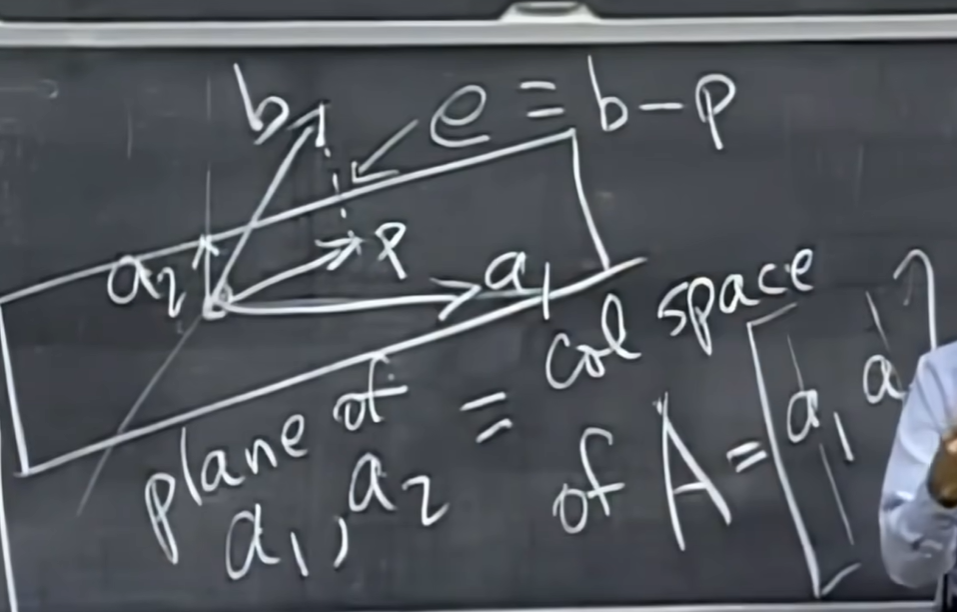 b
e = b - p
a2
p
a1
plane of
a1, a2
= col space
of A = [a1 a